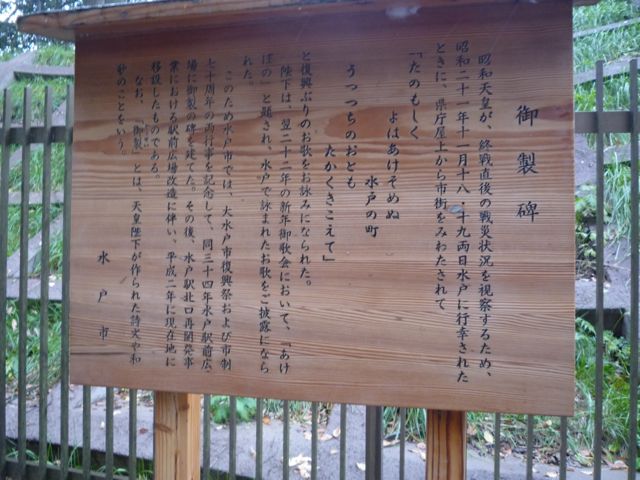 御製碑
昭和天皇が、終戦直後の戦災状況を視察するため、
昭和二十一年十一月十八・十九両日水戸に行幸された
ときに、県庁屋上から市街をみわたされて
「たのもしく
よはあけそめぬ
水戸の町
うつつちのおとも
たかくきこえて」
と復興ぶりのお歌をお詠みになられた。
陛下は、翌二十二年の新年御歌会において、「あけ
ぼの」と題され、水戸で詠まれたお歌をご披露になら
れた。
このため水戸市では、大水戸市復興祭および市制
七十周年の両行事を記念して、同三十四年水戸駅前広
場に御製の碑を建てた。その後、水戸駅北口再開発事
業における駅前広場改造に伴い、平成二年に現在地に
移設したものである。
なお、「御製」とは、天皇陛下が作られた詩文や和
歌のことをいう。
水戸市